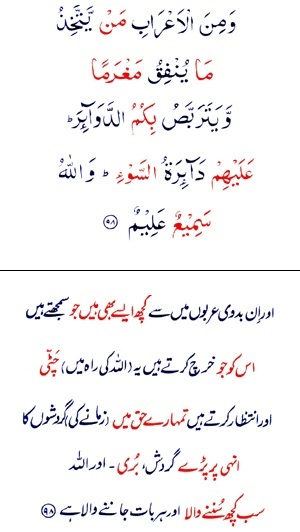 وَمِنَ الْاَعْرَابِ مَنْ يَّتَّخِذُ
مَا يُنْفِقُ مَغْرَمًا
وَّيَتَرَبَّصُ بِكُمُ الدَّوَآئِرَ ؕ
عَلَيْهِمْ دَآئِرَةُ السَّوْءِ ؕ وَاللّٰهُ
سَمِيْعٌ عَلِيْمٌ ﴿۹۸﴾
اور اِن بدوی عربوں میں سے کچھ ایسے بھی ہیں جو سمجھتے ہیں
اس کو جو خرچ کرتے ہیں یہ (اللہ کی راہ میں) چَٹّی
اور انتظار کرتے ہیں تمہارے حق میں (زمانے کی) گردشوں کا
انہی پر پڑے گردش، بُری ۔ اور اللہ
سب کچھ سُننے والا اور ہر بات جاننے والا ہے ﴿۹۸﴾